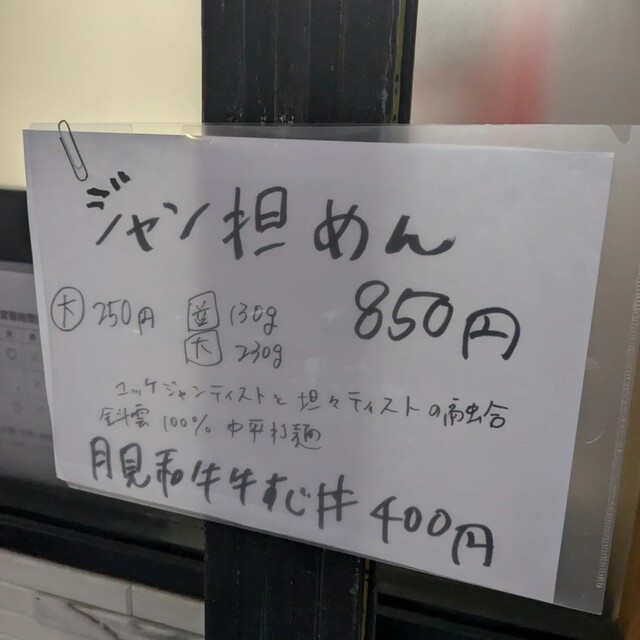 ジャン担めん
850円
大 250円 並 130g
大 230g
ユッケジャンテイストと坦々テイストの融合
100% 中平打麺
月見和牛牛すじ丼 400円